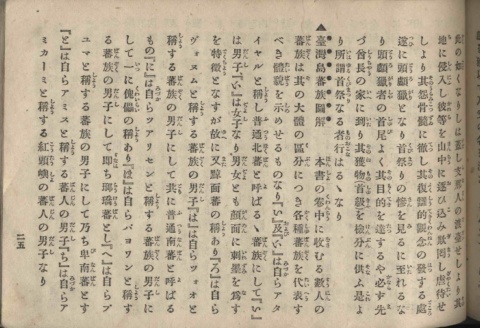 此の如くなりしは蓋し支那人の渡臺せしより其
地に侵入し彼等を山中に逐ひ込み欺罔し虐待せ
しより其怨骨髓に徹し其復讎的觀念の發する處
遂に頭顱獵となり首祭りの慘を見るに至れるな
り頭顱獵者の首尾よく其目的を達するや必ず先
づ酋長の家に到り其獲物首級を檢分に供ふ是よ
り所謂首祭なる者行はるゝなり
▲臺灣島蕃族圖解 本書の卷中に收むる數人の
蕃族は其の大體の區分につき各種蕃族を代表す
べき體貌を示めせるものなり『い』及『い』は自らアタ
イヤルと稱し普通北蕃と呼ばるゝ蕃族にして『い』
は男子『い』は女子なり男女とも顏面に刺墨を爲す
を特徵となすが故に又黥面蕃の稱あり『ろ』は自ら
ヴォヌムと稱する蕃族の男子『は』は自らツォオと
稱する蕃族の男子にして共に普通南蕃と呼ばる
もの『に』は自らツアリセンと稱する蕃族の男子に
して一に傀儡の稱あり『ほ』は自らパヨワンと稱す
る蕃族の男子にして卽ち瑯璚蕃とし『へ』は自らプ
ユマと稱する蕃族の男子にして乃ち卑南蕃とす
『と』は自らアミスと稱する蕃人の男子『ち』は自らア
ミカーミと稱する紅頭嶼の蕃人の男子なり
二五